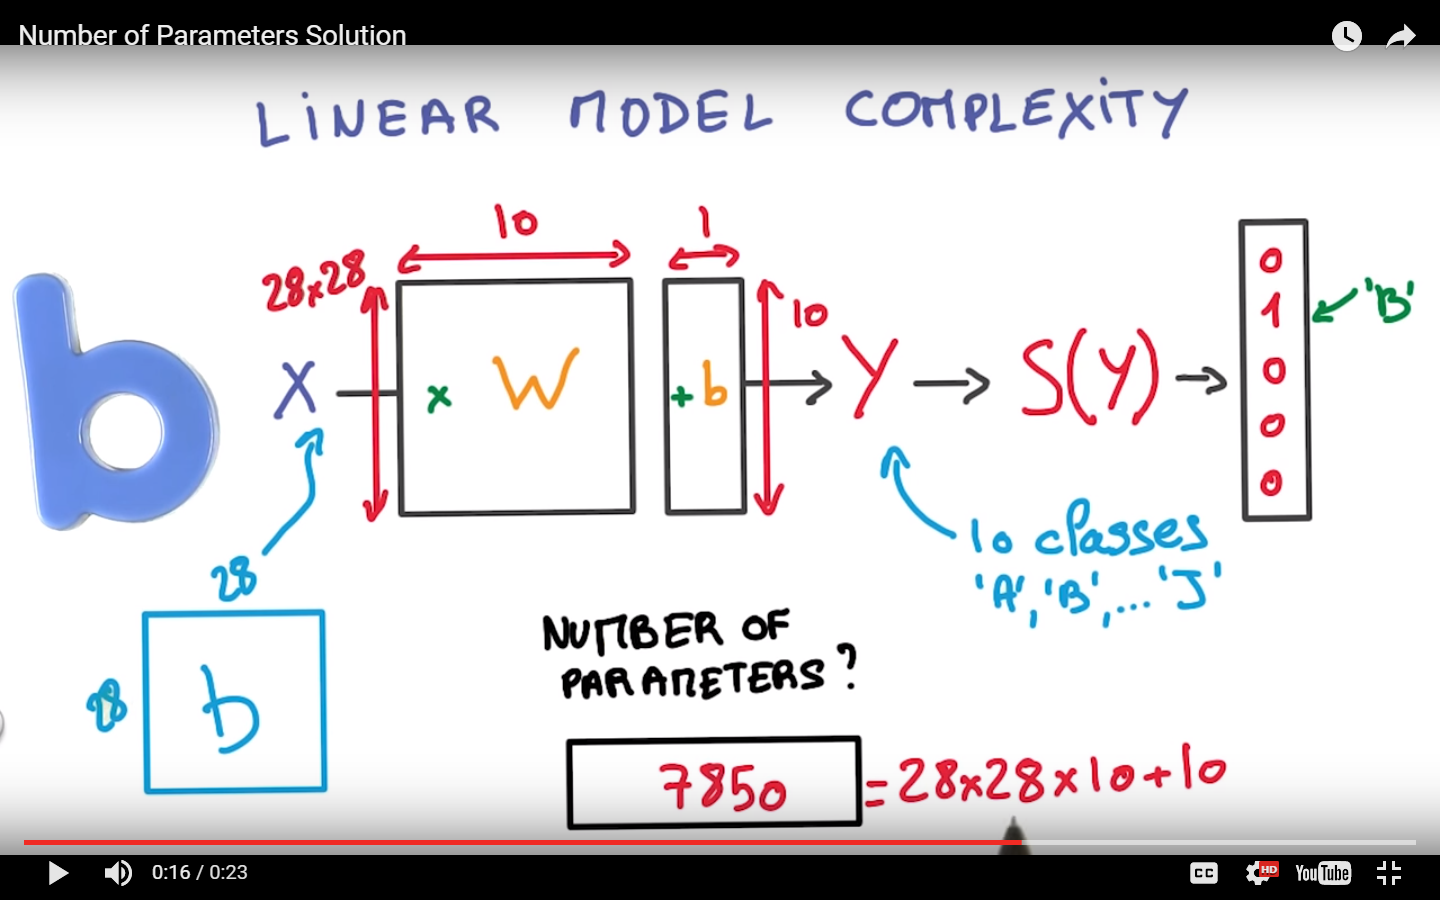 Number of Parameters Solution
LiNEAR MODEL COMPLEXiTY
10
1
28x28
10
X
x W
+ b
Y
S(Y)
0
1
0
0
0
'B'
28
28
b
10 classes
'A', 'B', ... 'J'
NUMBER OF
PARAMETERS?
7850 = 28x28x10+10
0:16 / 0:23
CC
HD
YouTube